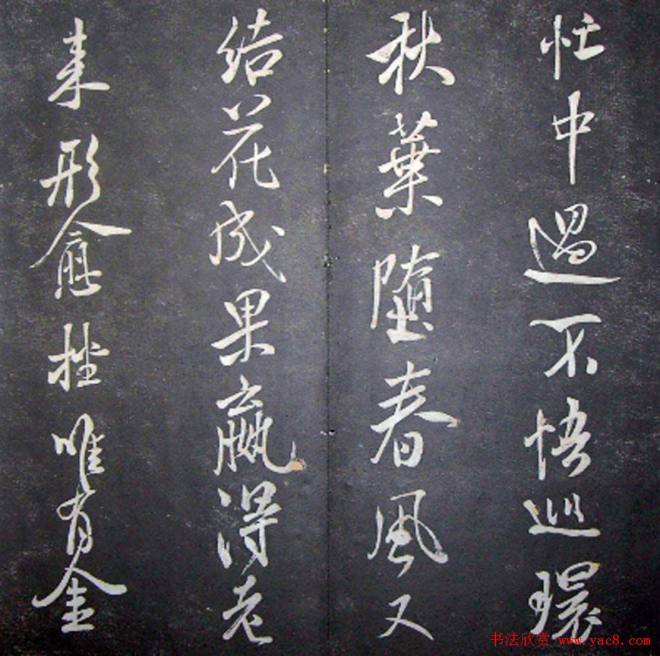 忙中過不悟巡環
秋葉墮春風又
結花成果贏得老
来形愈唯有金
书法欣赏 www.yac8.com